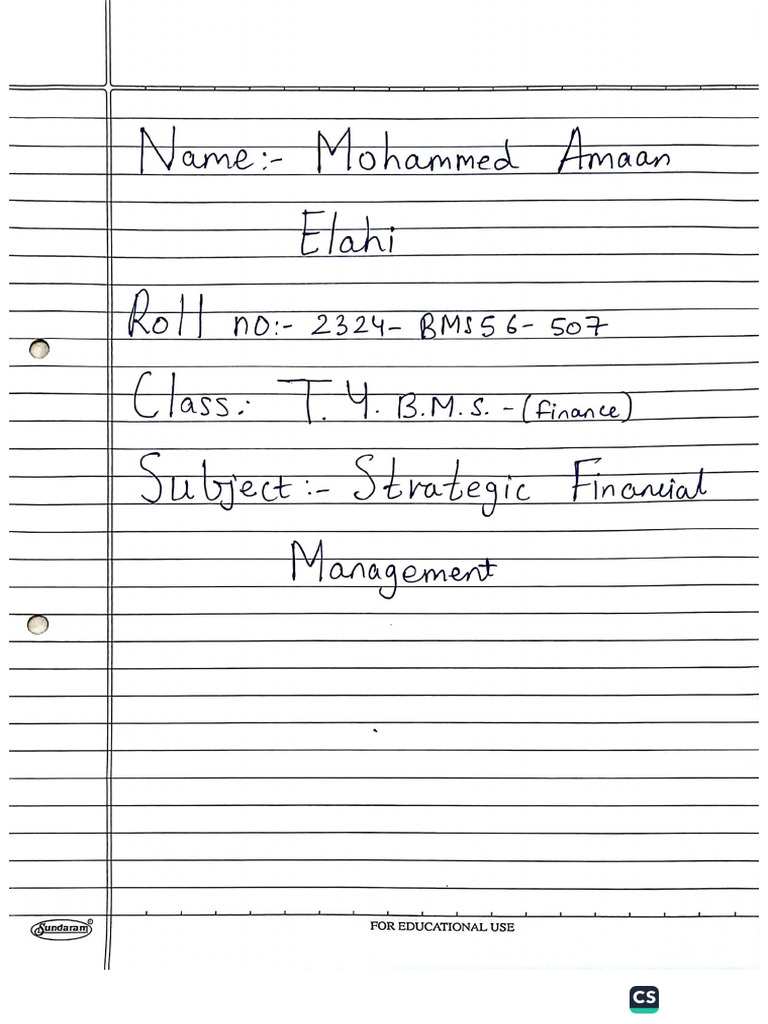 Name:- Mohammed Amaan
Elahi
Roll no:- 2324- BMS56- 507
Class: T.Y. B.M.S. - (finance)
Subject:- Strategic Financial
Management
Sundaram
FOR EDUCATIONAL USE
CS